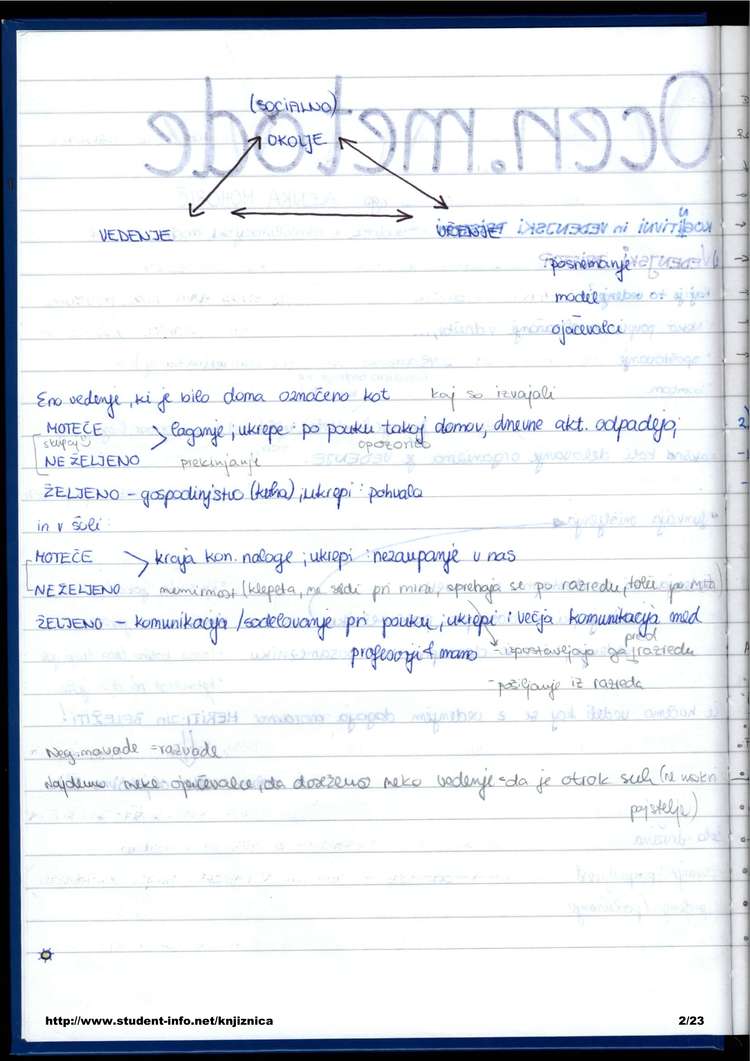 (SOCIALNO)
OKOLJE
VEDENJE
UČENJE
: posnemanje
model
ojačevalci
Eno vedenje, ki je bilo doma označeno kot kaj so izvajali
MOTEČE > laganje; ukrepe: po pouku takoj domov, dnevne akt. odpadejo;
skupaj opozorilo
NEŽELJENO prekinjanje
ŽELJENO - gospodinjstvo (kuha); ukrepi: pohvala
in v šoli:
MOTEČE > kraja kon. naloge; ukrepi: nezaupanje v nas
NEŽELJENO nemirnost (klepeta, ne sedi pri miru, sprehaja se po razredu,
ŽELJENO - komunikacija / sodelovanje pri pouku; ukrepi: večja komunikacija med
profesorji & mano - izpostavljajo ga pred razredu
- pošiljanje iz razreda
Neg. navade = razvade
Najdemo neke ojačevalce, da dosežemo neko vedenje = da je otrok suh (ne
postelje)
http://www.student-info.net/knjiznica
2/23